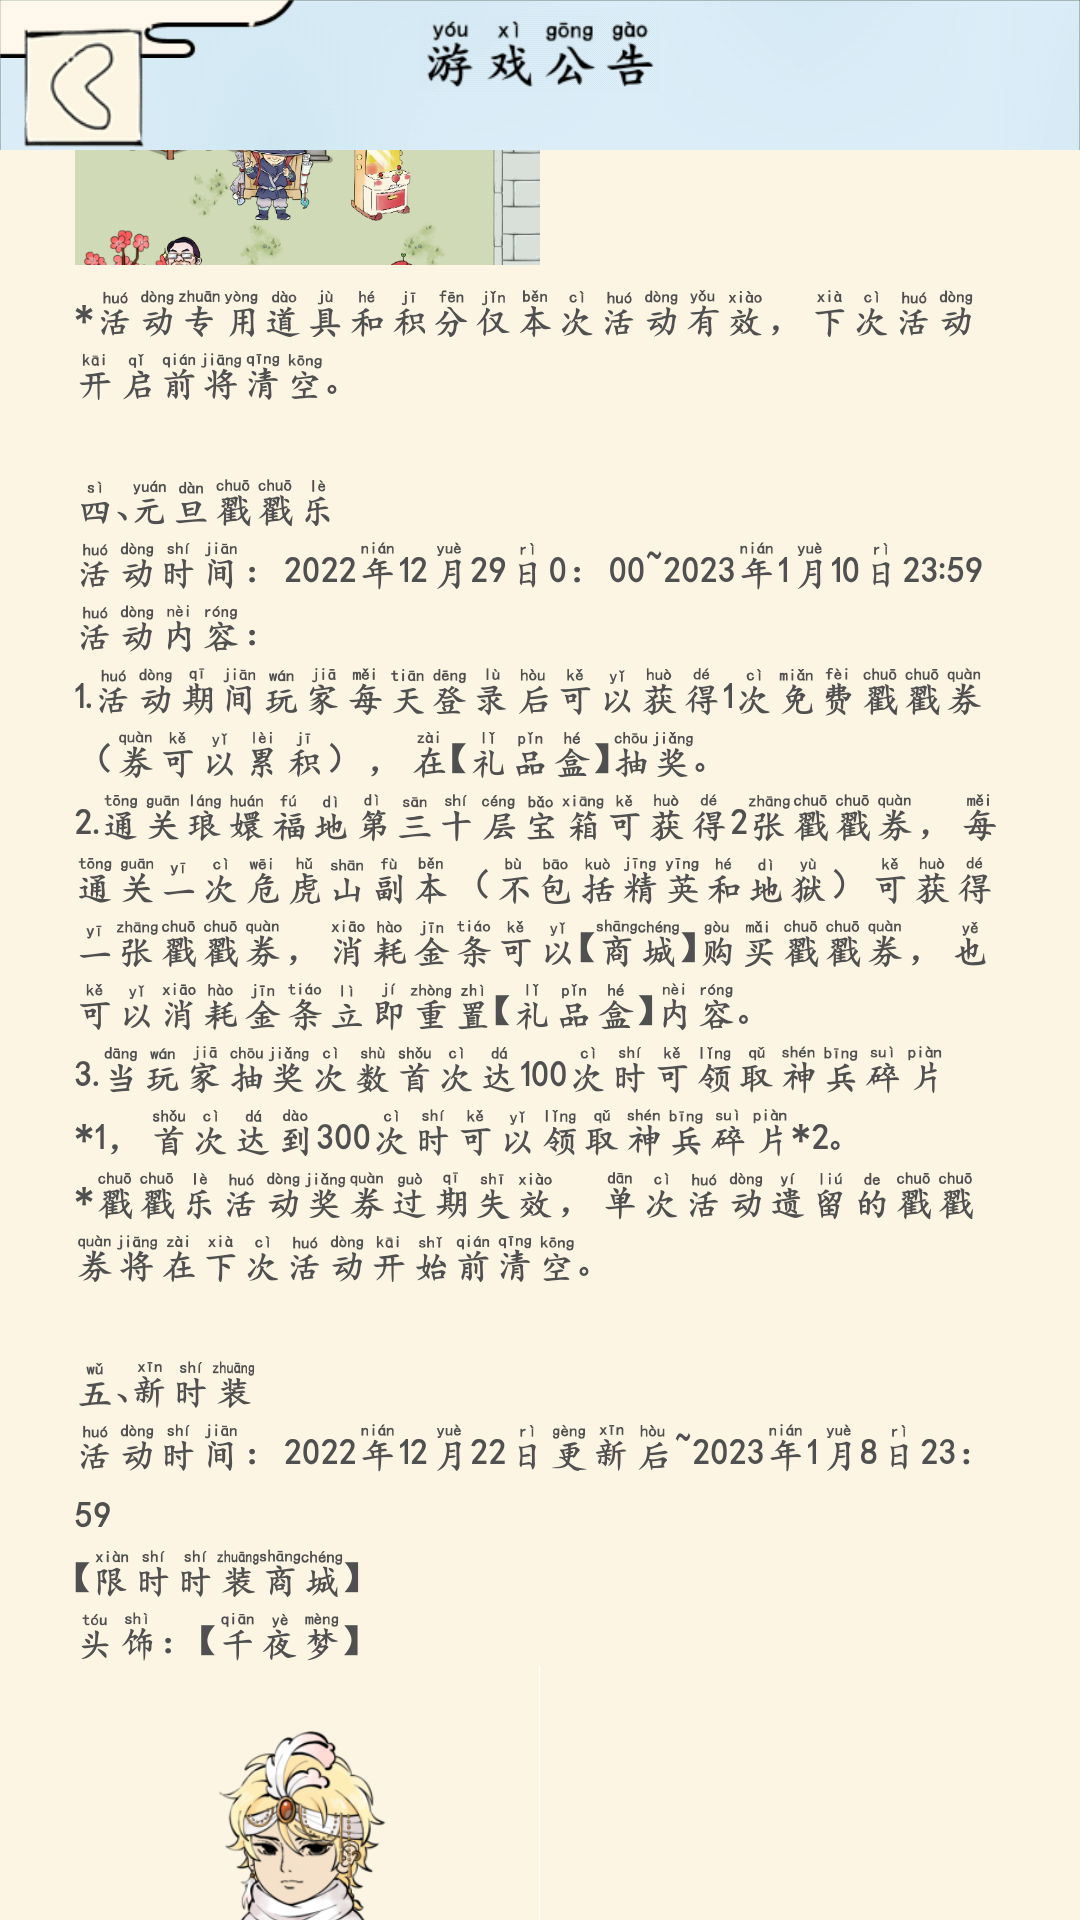 游戏公告
*活动专用道具和积分仅本次活动有效，下次活动
开启前将清空。
四、元旦戳戳乐
活动时间：2022年12月29日0：00~2023年1月10日23:59
活动内容：
1.活动期间玩家每天登录后可以获得1次免费戳戳券
（券可以累积），在【礼品盒】抽奖。
2.通关琅嬛福地第三十层宝箱可获得2张戳戳券，每
通关一次危虎山副本（不包括精英和地狱）可获得
一张戳戳券，消耗金条可以【商城】购买戳戳券，也
可以消耗金条立即重置【礼品盒】内容。
3.当玩家抽奖次数首次达100次时可领取神兵碎片
*1，首次达到300次时可以领取神兵碎片*2。
*戳戳乐活动奖券过期失效，单次活动遗留的戳戳
券将在下次活动开始前清空。
五、新时装
活动时间：2022年12月22日更新后~2023年1月8日23：
59
【限时时装商城】
头饰：【千夜梦】